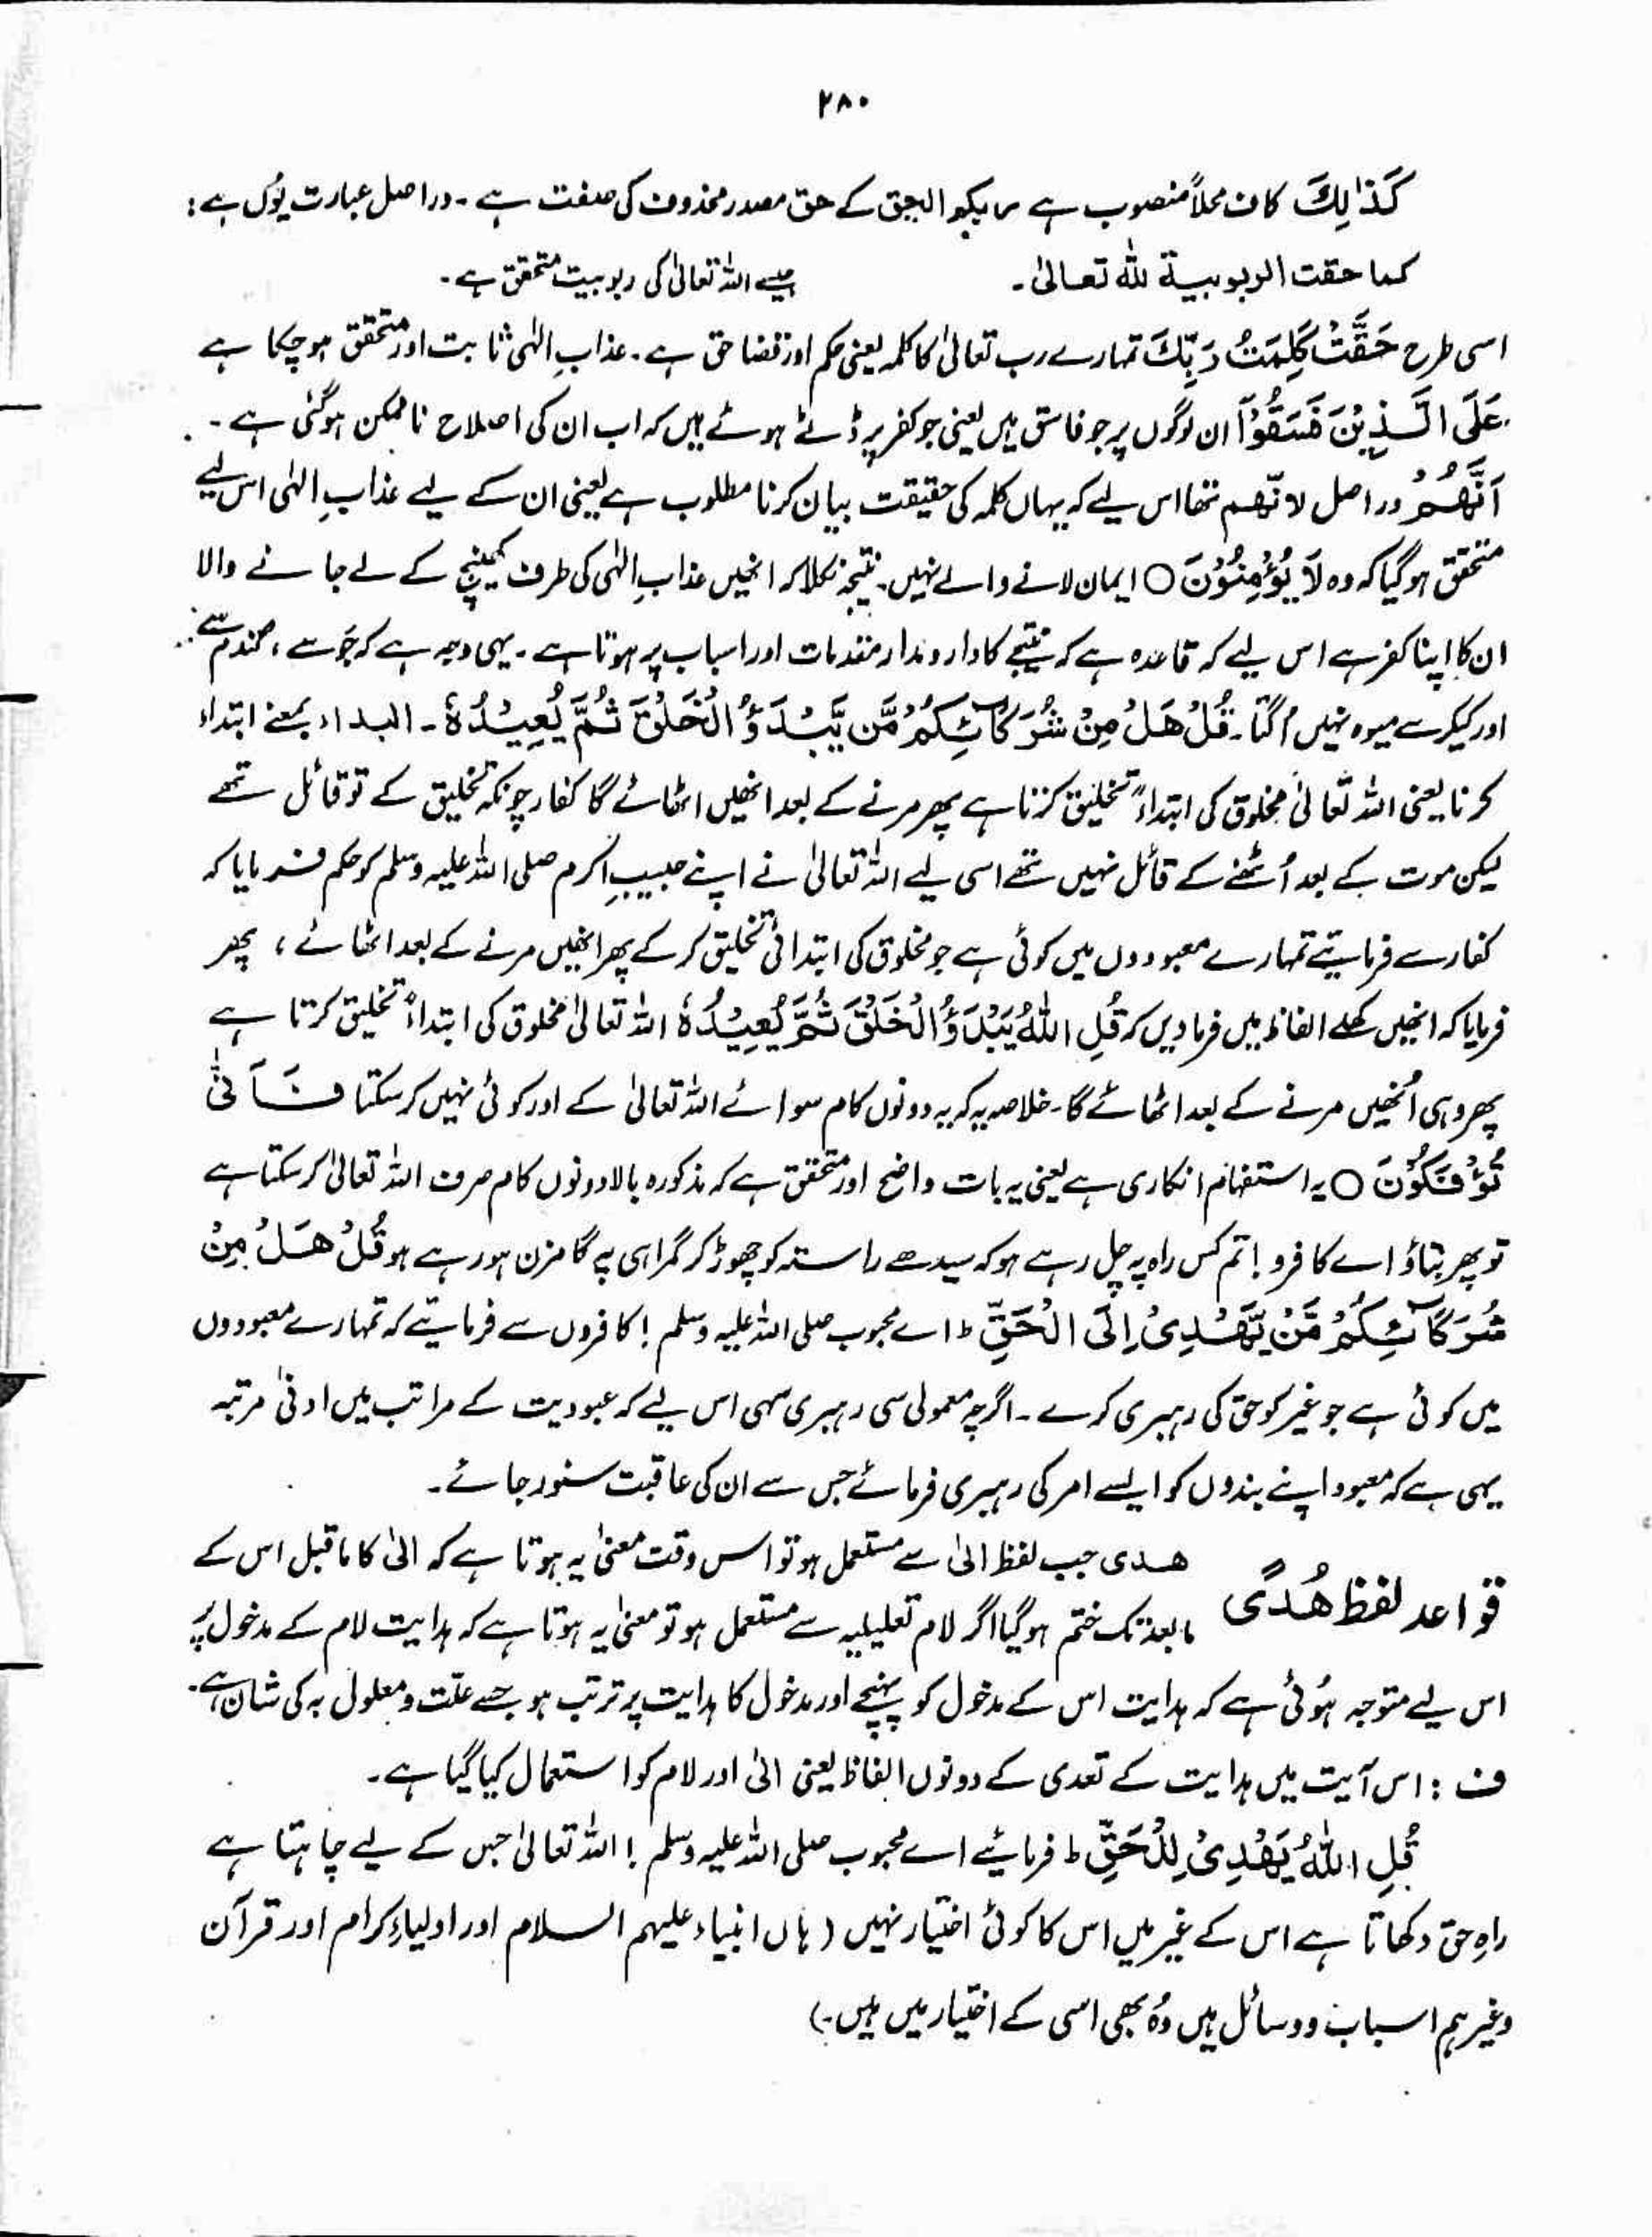 ۲۸۰
كَذٰلِكَ کاف محلاً منصوب ہے ربکم الحق کے حق مصدر محذوف کی صفت ہے ۔ دراصل عبارت یُوں ہے :
کما حقت الربوبیة للّٰه تعالیٰ۔ جیسے اللہ تعالیٰ کی ربوبیت متحقق ہے ۔
اسی طرح حَقَّتْ كَلِمَتُ رَبِّكَ تمہارے رب تعالیٰ کا کلمہ یعنی حکم اور قضا حق ہے ۔ عذابِ الٰہی ثابت اور متحقق ہو چکا ہے
عَلَى الَّذِيْنَ فَسَقُوْٓا ان لوگوں پر جو فاسق ہیں یعنی جو کفر پر ڈٹے ہوئے ہیں کہ اب ان کی اصلاح ناممکن ہو گئی ہے ۔
اَنَّهُمْ دراصل لانّهم تھا اس لیے کہ یہاں کلمہ کی حقیقت بیان کرنا مطلوب ہے یعنی ان کے لیے عذابِ الٰہی اس لیے
متحقق ہو گیا کہ وہ لَا يُؤْمِنُوْنَ ○ ایمان لانے والے نہیں۔ نتیجہ نکلا کہ انھیں عذابِ الٰہی کی طرف کھینچ کے لے جانے والا
ان کا اپنا کفر ہے اس لیے کہ قاعدہ ہے کہ نتیجے کا دارومدار مقدمات اور اسباب پر ہوتا ہے ۔ یہی وجہ ہے کہ جَو سے ، گندم سے
اور کیکر سے میوہ نہیں اُگتا۔ قُلْ هَلْ مِنْ شُرَكَآئِكُمْ مَّن يَّبْدَؤُا الْخَلْقَ ثُمَّ يُعِيْدُهٗ ۔ البداء بمعنے ابتداء
کرنا یعنی اللہ تعالیٰ مخلوق کی ابتداءً تخلیق کرتا ہے پھر مرنے کے بعد انھیں اٹھائے گا کفار چونکہ تخلیق کے تو قائل تھے
لیکن موت کے بعد اُٹھنے کے قائل نہیں تھے اسی لیے اللہ تعالیٰ نے اپنے حبیبِ اکرم صلی اللہ علیہ وسلم کو حکم فرمایا کہ
کفار سے فرمائیے تمہارے معبودوں میں کوئی ہے جو مخلوق کی ابتدائی تخلیق کر کے پھر انھیں مرنے کے بعد اٹھائے ، پھر
فرمایا کہ انھیں کھلے الفاظ میں فرما دیں کہ قُلِ اللّٰهُ يَبْدَؤُا الْخَلْقَ ثُمَّ يُعِيْدُهٗ اللہ تعالیٰ مخلوق کی ابتداءً تخلیق کرتا ہے
پھر وہی اُنھیں مرنے کے بعد اٹھائے گا۔ خلاصہ یہ کہ یہ دونوں کام سوائے اللہ تعالیٰ کے اور کوئی نہیں کر سکتا فَاَنّٰى
تُؤْفَكُوْنَ ○ یہ استفہام انکاری ہے یعنی یہ بات واضح اور متحقق ہے کہ مذکورہ بالا دونوں کام صرف اللہ تعالیٰ کر سکتا ہے
تو پھر بتاؤ اے کافرو ! تم کس راہ پہ چل رہے ہو کہ سیدھے راستہ کو چھوڑ کر گمراہی پہ گامزن ہو رہے ہو قُلْ هَلْ مِنْ
شُرَكَآئِكُمْ مَّنْ يَّهْدِىْٓ اِلَى الْحَقِّ ط اے محبوب صلی اللہ علیہ وسلم ! کافروں سے فرمائیے کہ تمہارے معبودوں
میں کوئی ہے جو غیر کو حق کی رہبری کرے ۔ اگرچہ معمولی سی رہبری سہی اس لیے کہ عبودیت کے مراتب میں ادنیٰ مرتبہ
یہی ہے کہ معبود اپنے بندوں کو ایسے امر کی رہبری فرمائے جس سے ان کی عاقبت سنور جائے ۔
قواعد لفظ هُدًى
ھدی جب لفظ الیٰ سے مستعمل ہو تو اس وقت معنیٰ یہ ہوتا ہے کہ الیٰ کا ماقبل اس کے
مابعد تک ختم ہو گیا اگر لام تعلیلیہ سے مستعمل ہو تو معنیٰ یہ ہوتا ہے کہ ہدایت لام کے مدخول پر
اس لیے متوجہ ہُوئی ہے کہ ہدایت اس کے مدخول کو پہنچے اور مدخول کا ہدایت پر ترتب ہو جیسے علّت و معلول بہ کی شان ہے۔
ف : اس آیت میں ہدایت کے تعدی کے دونوں الفاظ یعنی الیٰ اور لام کو استعمال کیا گیا ہے ۔
قُلِ اللّٰهُ يَهْدِىْ لِلْحَقِّ ط فرمائیے اے محبوب صلی اللہ علیہ وسلم ! اللہ تعالیٰ جس کے لیے چاہتا ہے
راہِ حق دکھاتا ہے اس کے غیر میں اس کا کوئی اختیار نہیں ( ہاں انبیاء علیہم السلام اور اولیاءِ کرام اور قرآن
وغیرہم اسباب و وسائل ہیں وُہ بھی اسی کے اختیار میں ہیں ۔)